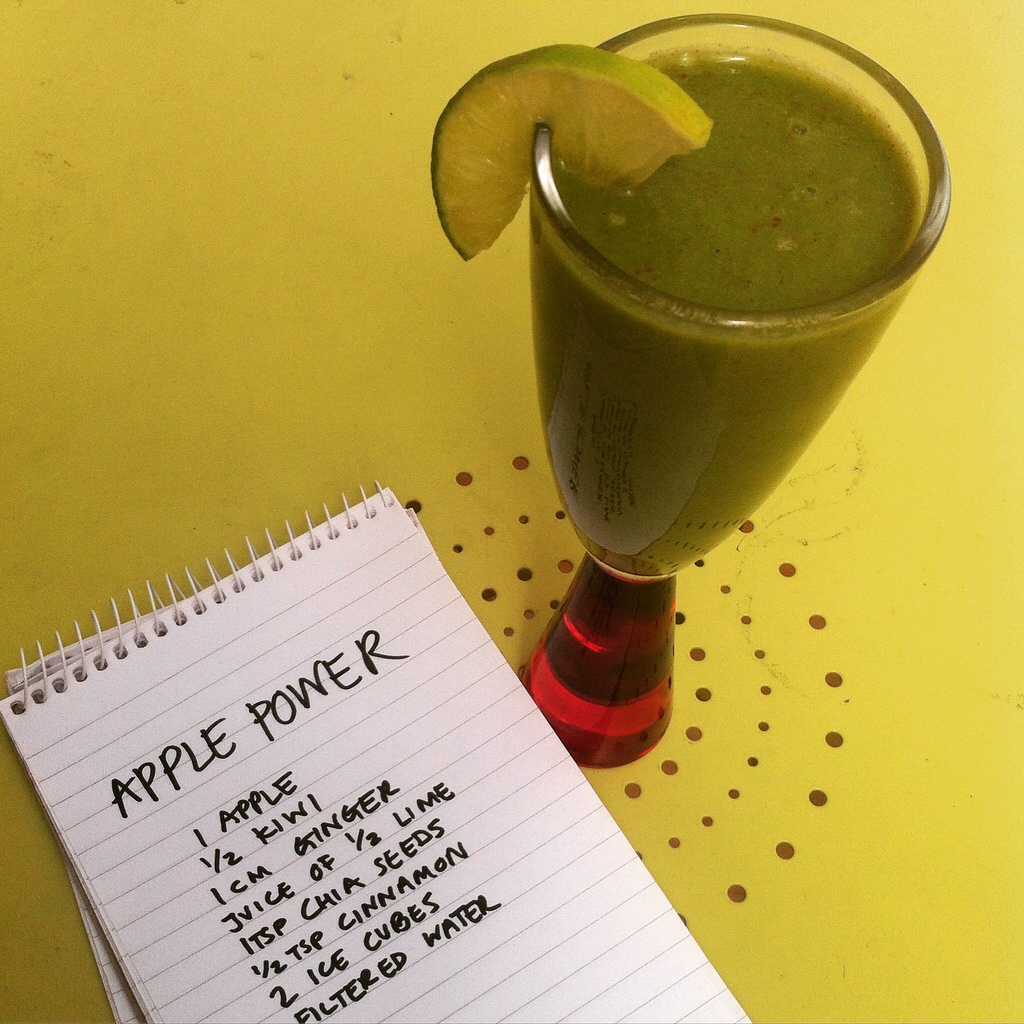 APPLE POWER
1 APPLE
1/2 KIWI
1CM GINGER
JUICE OF 1/2 LIME
1TSP CHIA SEEDS
1/2 TSP CINNAMON
2 ICE CUBES
FILTERED WATER